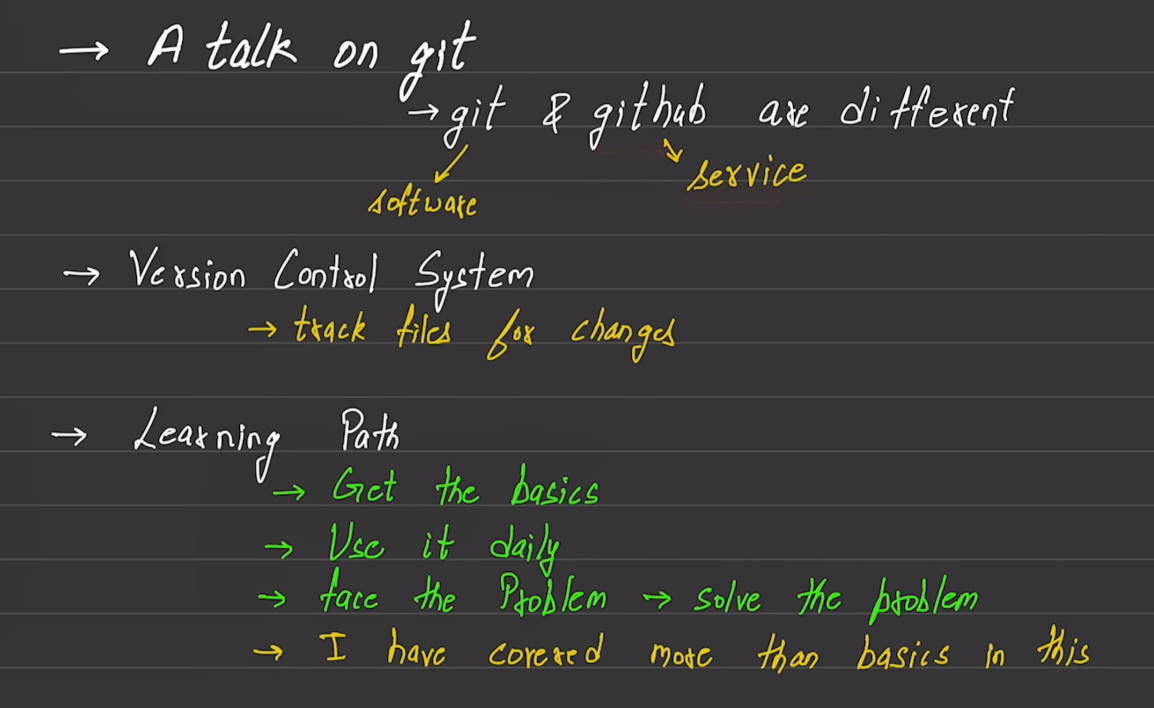 → A talk on git
→ git & github are different
software service
→ Version Control System
→ track files for changes
→ Learning Path
→ Get the basics
→ Use it daily
→ face the Problem → solve the problem
→ I have covered more than basics in this